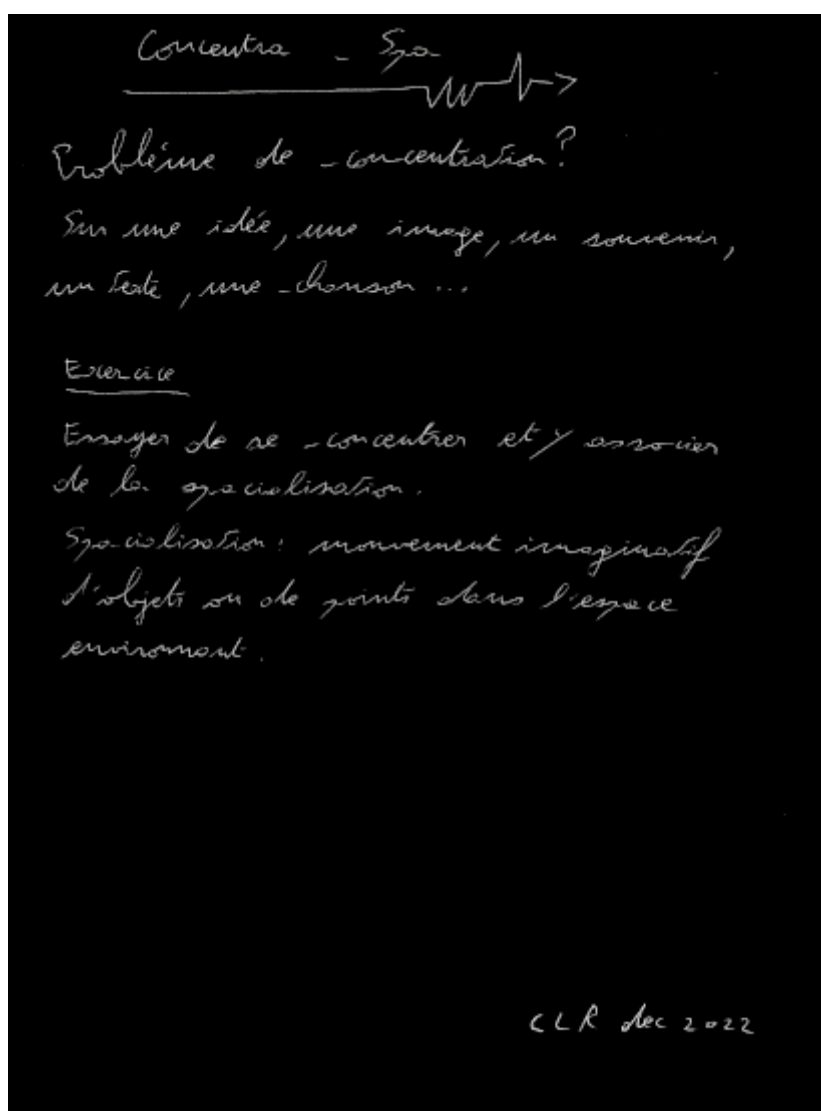 Concentra - Spa
Problème de concentration?
Sur une idée, une image, un souvenir,
un texte, une chanson ...
Exercice
Essayer de se concentrer et y associer
de la spacialisation.
Spacialisation : mouvement imaginatif
d'objets ou de points dans l'espace
environnant.
CLR dec 2022